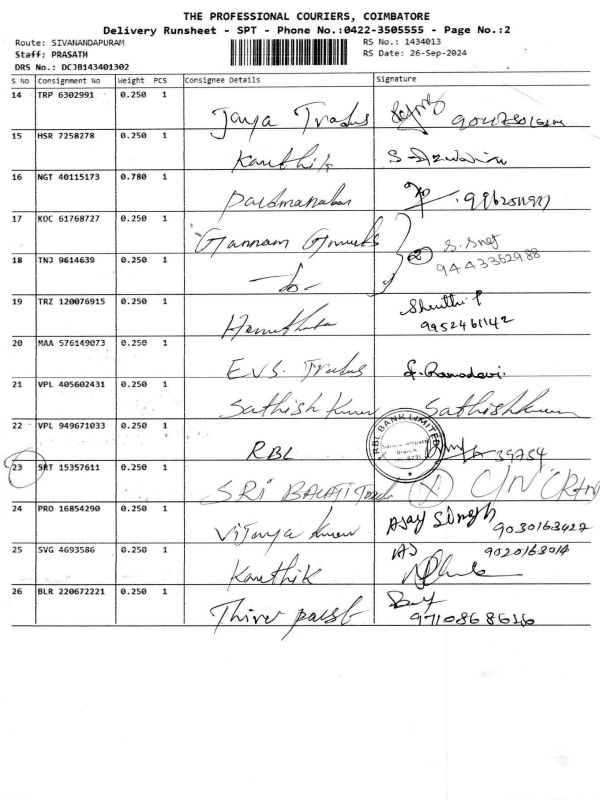 THE PROFESSIONAL COURIERS, COIMBATORE
Delivery Runsheet - SPT - Phone No.:0422-3505555 - Page No.:2
Route: SIVANANDAPURAM
RS No.: 1434013
Staff: PRASATH
RS Date: 26-Sep-2024
DRS No.: DCJB143401302
S No Consignment No Weight PCS Consignee Details Signature
14 TRP 6302991 0.250 1 Jaya Traders
15 HSR 7258278 0.250 1 Karthik
16 NGT 40115173 0.780 1
17 KOC 61768727 0.250 1 2
9443362988
18 TNJ 9614639 0.250 1 - do -
19 TRZ 120076915 0.250 1 Shruthi P
9952461142
20 MAA 576149073 0.250 1 E.V.S. Traders
21 VPL 405602431 0.250 1 Sathish Kumar Sathishkumar
22 VPL 949671033 0.250 1 RBL RBL BANK LIMITED 39754
23 SRT 15357611 0.250 1 SRI BALAJI C/N
24 PRO 16854290 0.250 1 Vijaya Kumar Ajay Singh
9030163427
25 SVG 4693586 0.250 1 Karthik 9020163014
26 BLR 220672221 0.250 1
9710868616